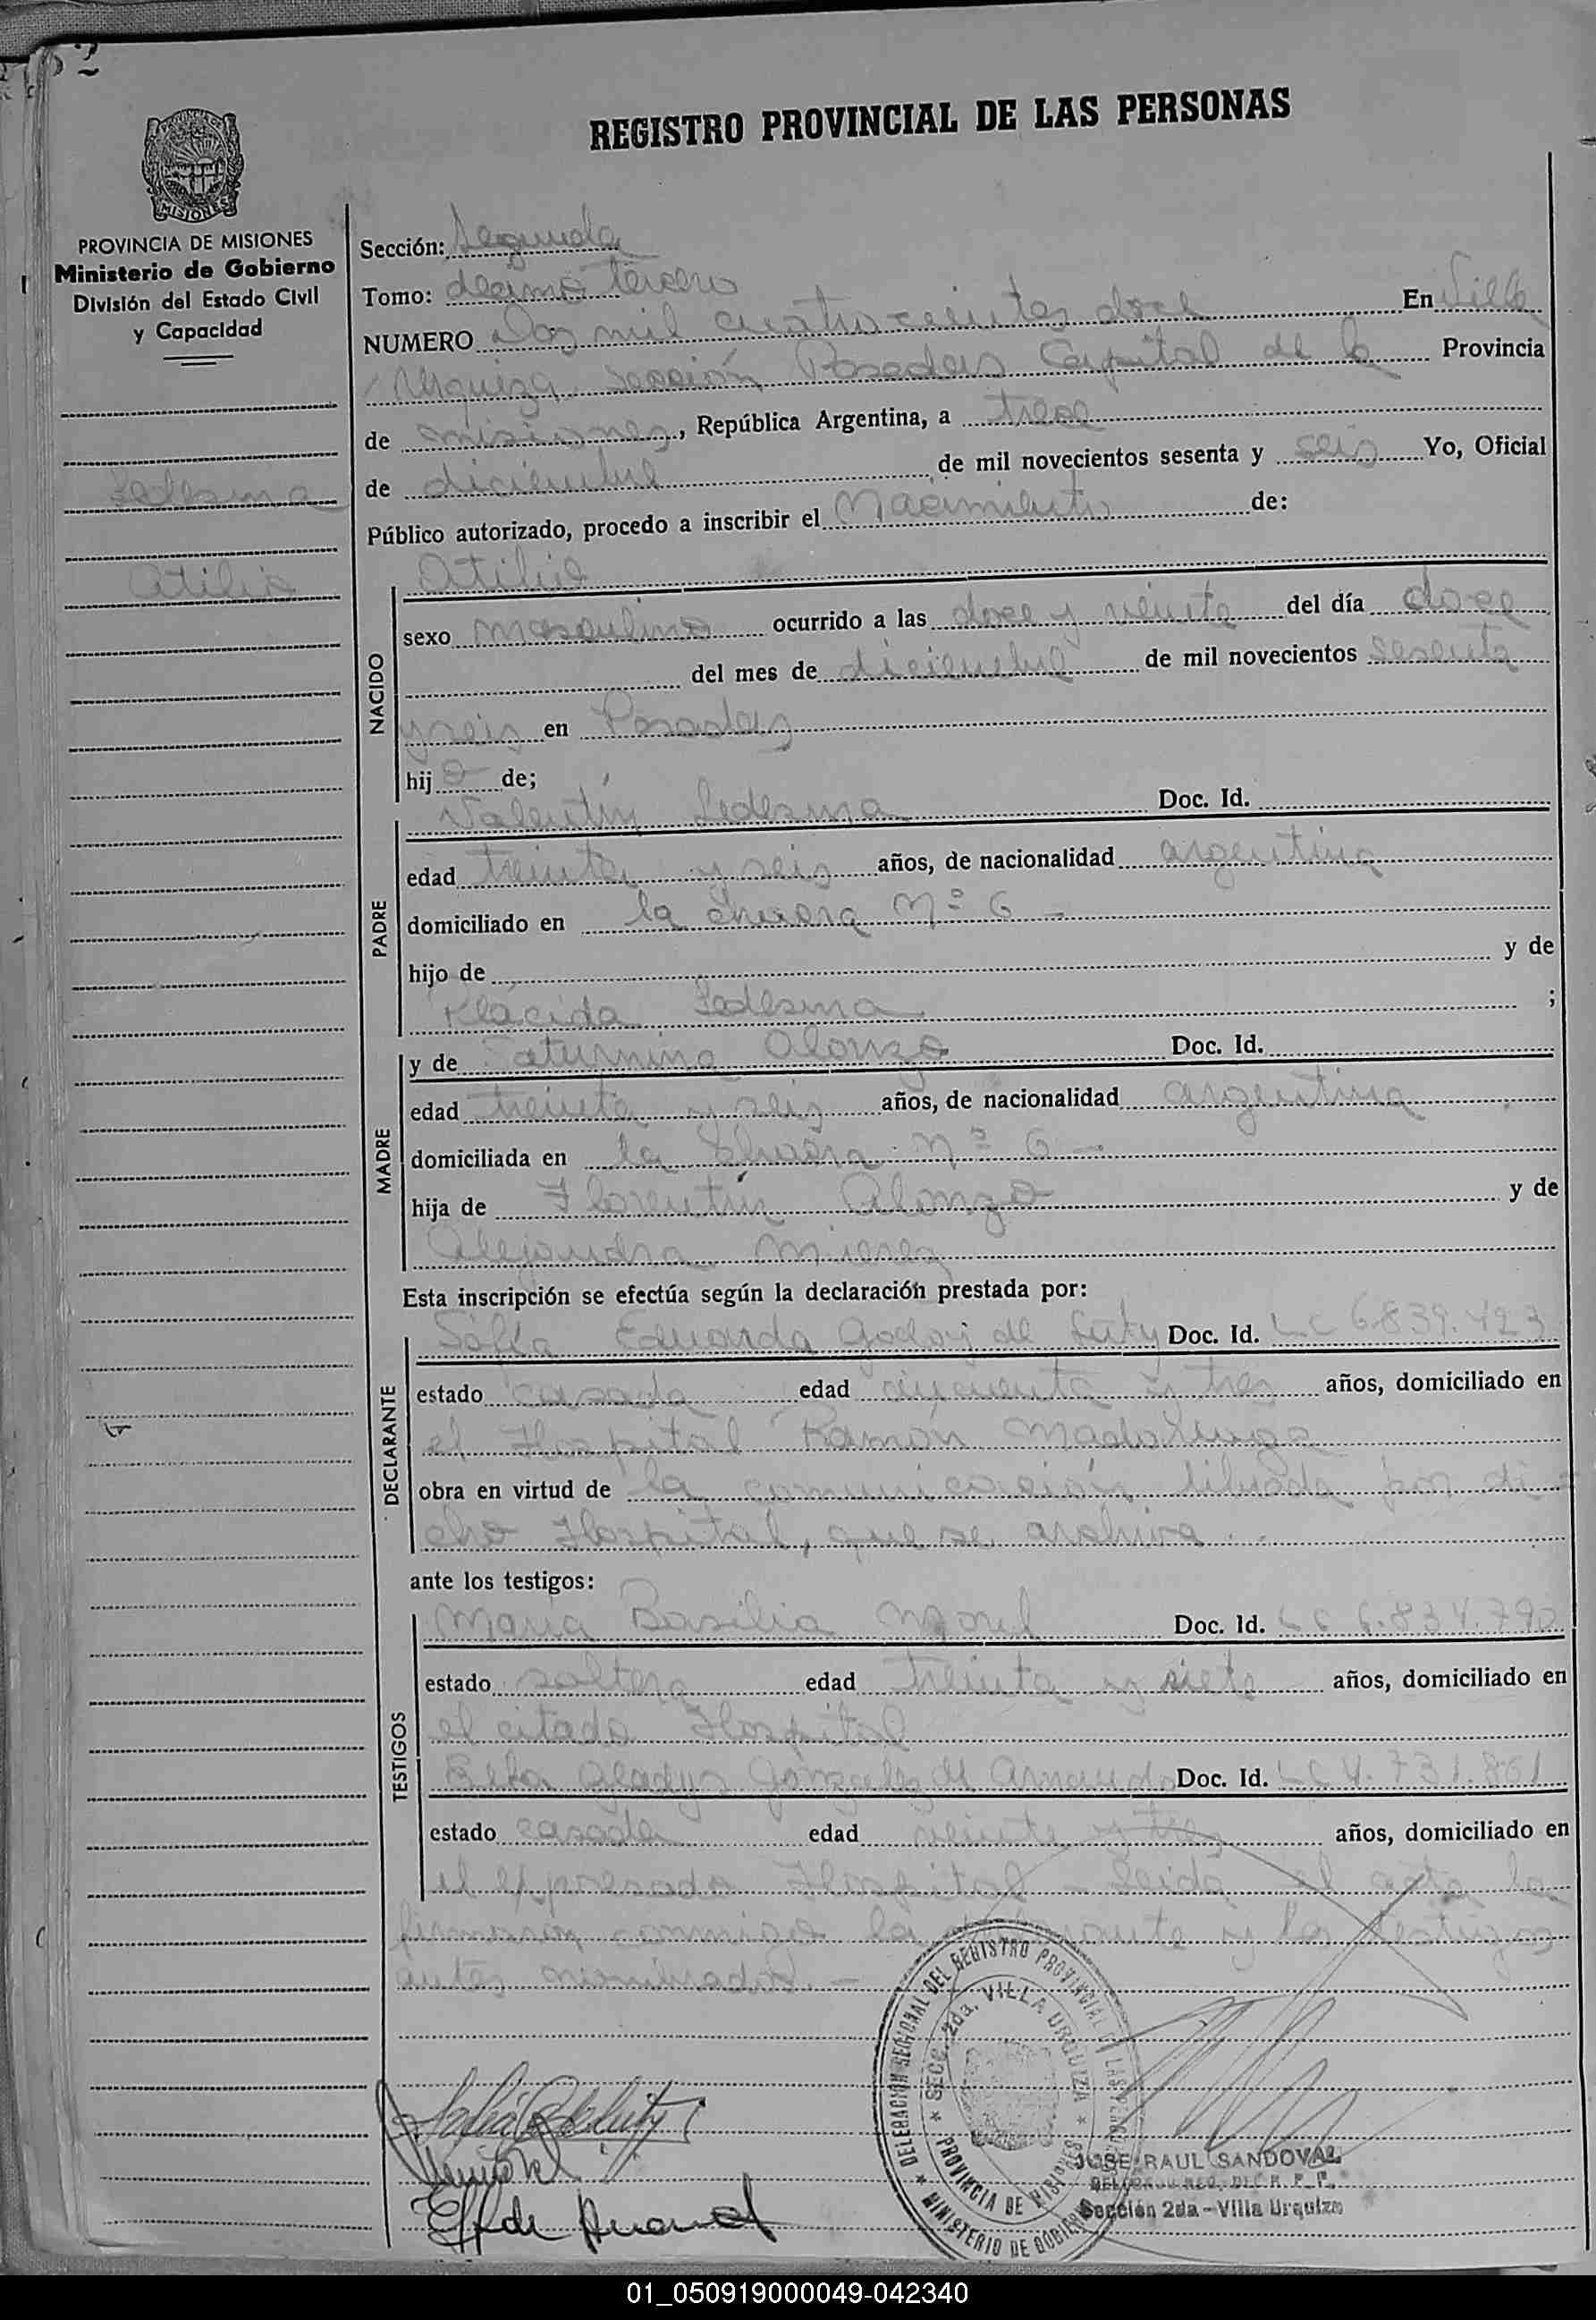 REGISTRO PROVINCIAL DE LAS PERSONAS
MISIONES
PROVINCIA DE MISIONES
Ministerio de Gobierno
División del Estado Civil
y Capacidad
Ledesma
Atilio
Sección: Segunda
Tomo: decimo tercero
NUMERO Dos mil cuatrocientos doce En Villa
Urquiza Sección Posadas Capital de la Provincia
de misiones, República Argentina, a trece
de diciembre de mil novecientos sesenta y seis Yo, Oficial
Público autorizado, procedo a inscribir el Nacimiento de:
NACIDO
Atilio
sexo masculino ocurrido a las doce y veinte del día doce
del mes de diciembre de mil novecientos sesenta
y seis en Posadas
hijo de;
PADRE
Valentín Ledesma Doc. Id.
edad treinta y seis años, de nacionalidad argentina
domiciliado en la chacra Nº 6 -
hijo de y de
Plácida Ledesma ;
MADRE
y de Saturnina Alonzo Doc. Id.
edad treinta y seis años, de nacionalidad argentina
domiciliada en la chacra Nº 6 -
hija de Florentín Alonzo y de
Alejandra Mieres
Esta inscripción se efectúa según la declaración prestada por:
DECLARANTE
Sofía Eduarda Godoy de Luty Doc. Id. LC 6.839.423
estado casada edad cincuenta y tres años, domiciliado en
el Hospital Ramón Madariaga
obra en virtud de la comunicación librada por di
cho Hospital, que se archiva . -
ante los testigos:
TESTIGOS
María Basilia Morel Doc. Id. LC 6.834.790
estado soltera edad treinta y siete años, domiciliado en
el citado Hospital
Gladys Gonzalez de Doc. Id. LC 4.731.861
estado casada edad veinte y tres años, domiciliado en
el expresado Hospital - Leida el acta la
firmaron conmigo la declarante y los testigos
antes nombrados. -
DELEGACION REGIONAL DEL REGISTRO PROVINCIAL DE LAS PERSONAS
SECC. 2da. VILLA URQUIZA
PROVINCIA DE MISIONES
MINISTERIO DE GOBIERNO
JOSE RAUL SANDOVAL
Sección 2da - Villa Urquiza
01_050919000049-042340